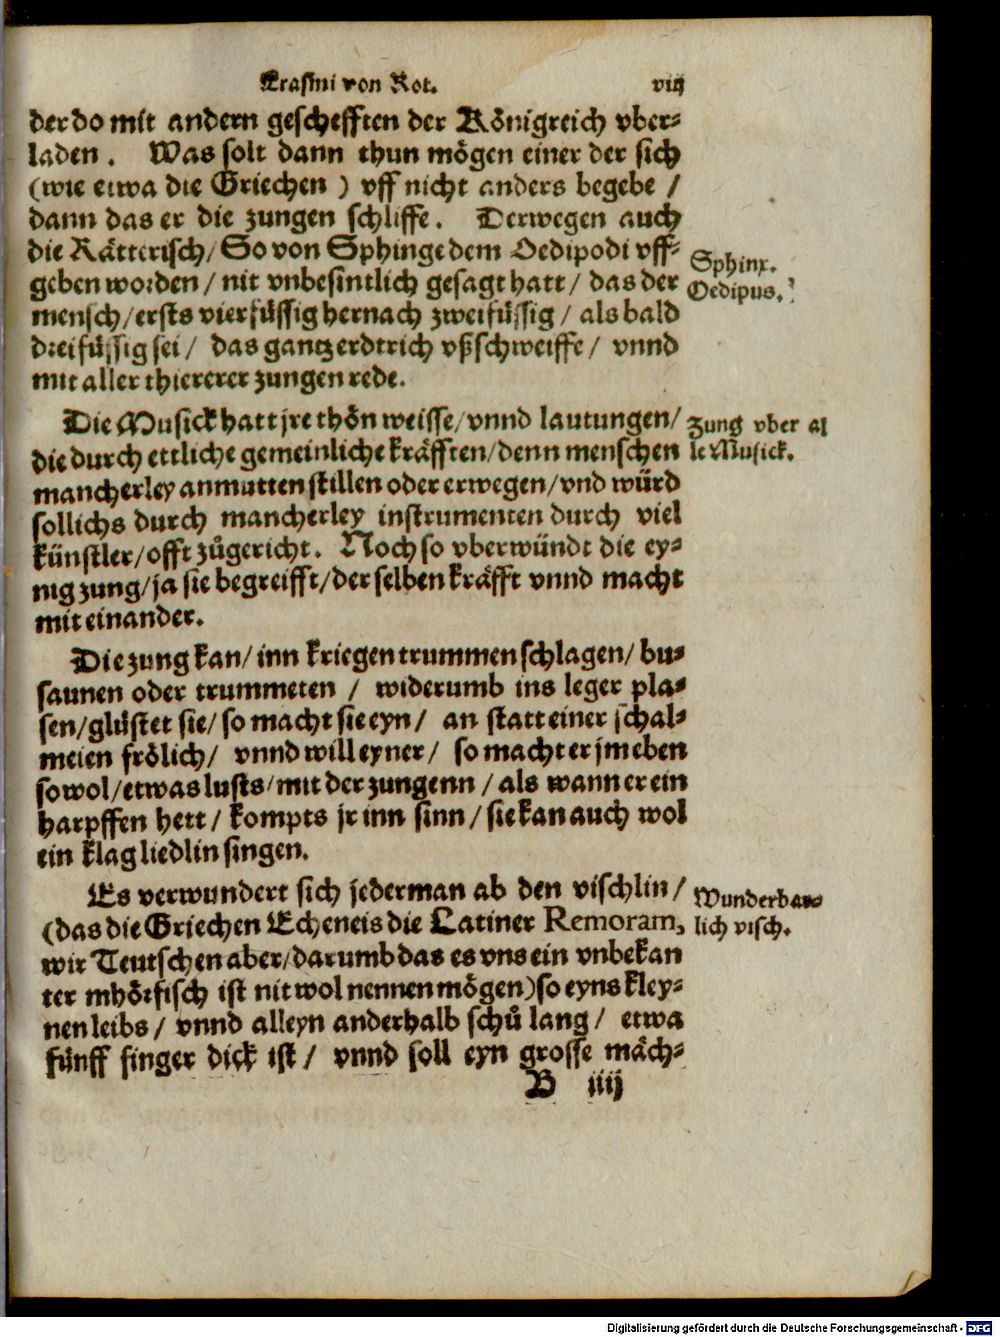 Erasmi von Rot. viij
der do mit andern geschefften der Königreich vber-
laden. Was solt dann thun mögen einer der sich
(wie etwa die Griechen) vff nicht anders begebe /
dann das er die zungen schliffe. Derwegen auch
die Rätterisch / So von Sphinge dem Oedipodi vff-
geben worden / nit vnbesintlich gesagt hatt / das der
mensch / ersts vierfüssig hernach zweifüssig / als bald
dreifüssig sei / das gantz erdtrich vßschweiffe / vnnd
mit aller thiererer zungen rede.
Sphinx.
Oedipus.
Die Musick hatt jre thön weisse / vnnd lautungen /
die durch ettliche gemeinliche kräfften / denn menschen
mancherley anmutten stillen oder erwegen / vnd würd
sollichs durch mancherley instrumenten durch viel
künstler / offt zůgericht. Noch so vberwündt die ey-
nig zung / ja sie begreifft / der selben kräfft vnnd macht
mit einander.
Zung vber al
le Musick.
Die zung kan / inn kriegen trummen schlagen / bu-
saunen oder trummeten / widerumb ins leger pla-
sen / glüstet sie / so macht sie eyn / an statt einer schal-
meien frölich / vnnd will eyner / so macht er jm eben
so wol / etwas lusts / mit der zungenn / als wann er ein
harpffen hett / kompts jr inn sinn / sie kan auch wol
ein klag liedlin singen.
Es verwundert sich jederman ab den vischlin /
(das die Griechen Echeneis die Latiner Remoram,
wir Teutschen aber / darumb das es vns ein vnbekan
ter mhörfisch ist nit wol nennen mögen) so eyns kley-
nen leibs / vnnd alleyn anderhalb schů lang / etwa
fünff finger dick ist / vnnd soll eyn grosse mäch-
Wunderbar-
lich visch.
B iiij
Digitalisierung gefördert durch die Deutsche Forschungsgemeinschaft - DFG